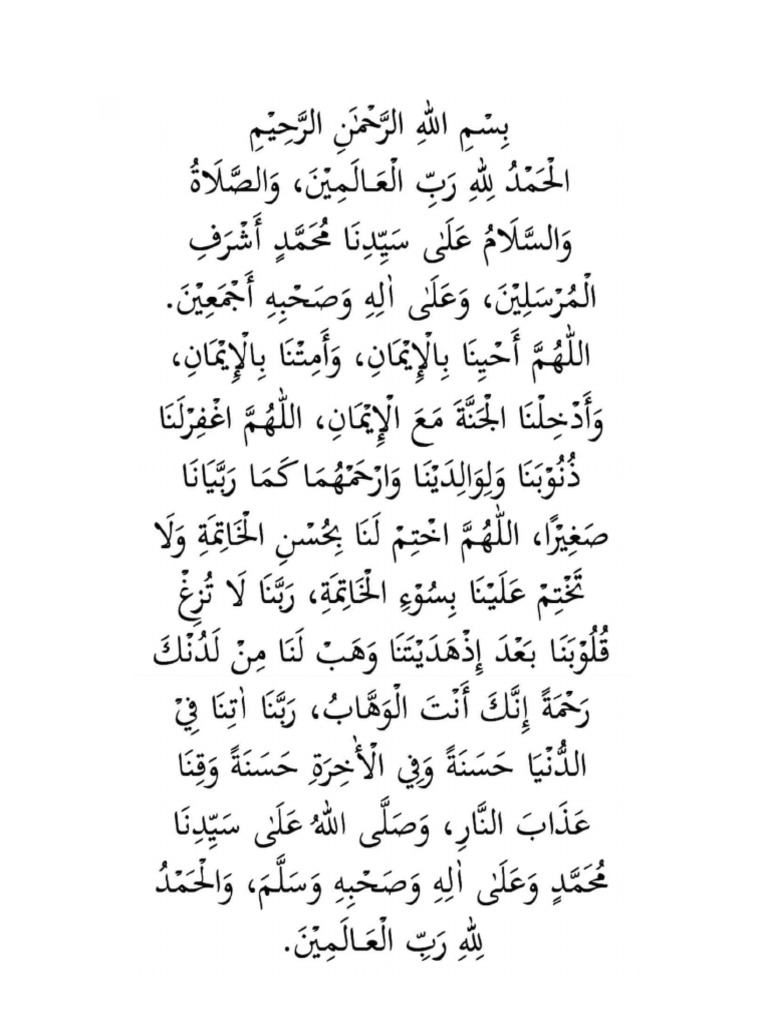 بِسْمِ اللهِ الرَّحْمٰنِ الرَّحِيْمِ
الْحَمْدُ لِلّٰهِ رَبِّ الْعَالَمِيْنَ، وَالصَّلَاةُ
وَالسَّلَامُ عَلَى سَيِّدِنَا مُحَمَّدٍ أَشْرَفِ
الْمُرْسَلِيْنَ، وَعَلَى اٰلِهِ وَصَحْبِهِ أَجْمَعِيْنَ.
اللّٰهُمَّ أَحْيِنَا بِالْإِيْمَانِ، وَأَمِتْنَا بِالْإِيْمَانِ،
وَأَدْخِلْنَا الْجَنَّةَ مَعَ الْإِيْمَانِ، اللّٰهُمَّ اغْفِرْلَنَا
ذُنُوْبَنَا وَلِوَالِدَيْنَا وَارْحَمْهُمَا كَمَا رَبَّيَانَا
صَغِيْرًا، اللّٰهُمَّ اخْتِمْ لَنَا بِحُسْنِ الْخَاتِمَةِ وَلَا
تَخْتِمْ عَلَيْنَا بِسُوْءِ الْخَاتِمَةِ، رَبَّنَا لَا تُزِغْ
قُلُوْبَنَا بَعْدَ إِذْهَدَيْتَنَا وَهَبْ لَنَا مِنْ لَدُنْكَ
رَحْمَةً إِنَّكَ أَنْتَ الْوَهَّابُ، رَبَّنَا اٰتِنَا فِيْ
الدُّنْيَا حَسَنَةً وَفِي الْأٰخِرَةِ حَسَنَةً وَقِنَا
عَذَابَ النَّارِ، وَصَلَّى اللهُ عَلَى سَيِّدِنَا
مُحَمَّدٍ وَعَلَى اٰلِهِ وَصَحْبِهِ وَسَلَّمَ، وَالْحَمْدُ
لِلّٰهِ رَبِّ الْعَالَمِيْنَ.